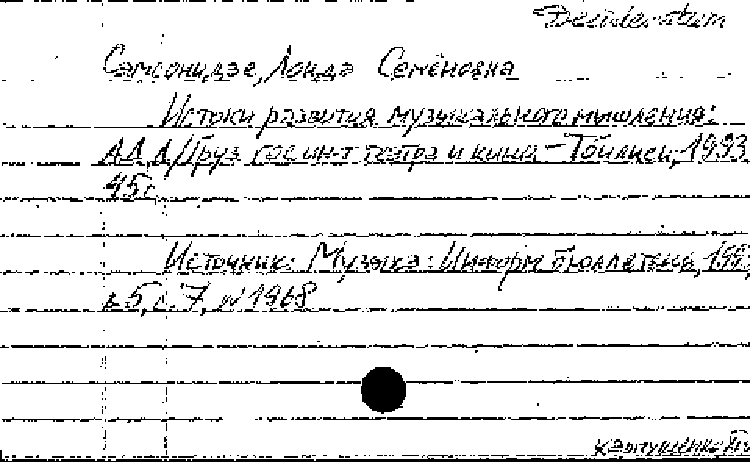 Desideratum
Самсонидзе, Лондэ Семёновна
Истоки развития музыкального мышления:
АД, Д/Груз гос ин-т театра и кино – Тбилиси, 1993
45с
Источник: Музыка: Информ бюллетень, 199
в.5, с.7, №1468
Карпушенко